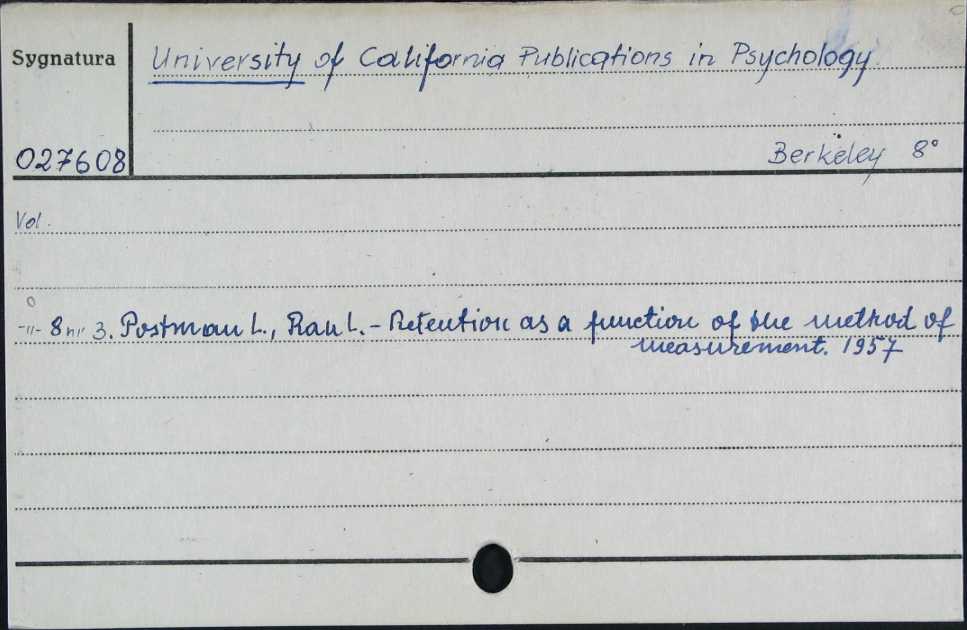 Sygnatura
University of California Publications in Psychology
027608
Berkeley 8°
Vol.
-"- 8 nr 3. Postman L., Rau L. - Retention as a function of the method of
measurement. 1957